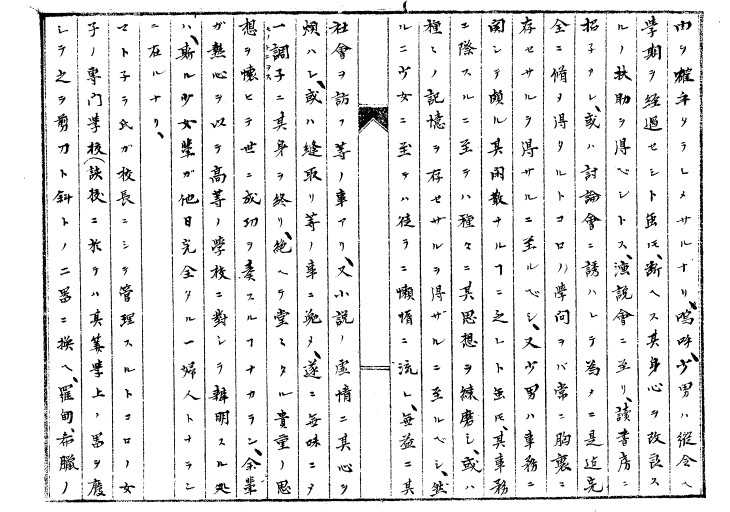 由ヲ確牢タラシメサルナリ、嗚呼少男ハ縦令ヘ
學期ヲ経過セシト虽𪜈、断ヘス其身心ヲ改良ス
ルノ扶助ヲ得ベシトス、演説會ニ至リ、讀書房ニ
招子カレ、或ハ討論會ニ誘ハレテ為メニ是迄完
全ニ脩メ得タルトコロノ學問ヲバ常ニ胸裏ニ
存セサルヲ得サルニ至ルベシ、又少男ハ事務ニ
関シテ頗ル其閑散ナルヿニ乏シト虽𪜈、其事務
ニ際スルニ至テハ種々ニ其思想ヲ練磨シ、或ハ
種々ノ記憶ヲ存セサルヲ得ザルニ至ルベシ、然
ルニ少女ニ至テハ徒ラニ懶惰ニ流レ、毎益ニ其
社會ヲ訪フ等ノ事アリ、又小説ノ虚情ニ其心ヲ
煩ハシ、或ハ縫取リ等ノ事ニ逸メ、遂ニ毎味ニヲ
一調子ニ其身ヲ終リ、絶ヘテ堂々タル貴重ノ思
想ヲ懐ヒテ世ニ成功ヲ奏スルヿナカラン、余輩
ガ熱心ヲ以テ高等ノ學校ニ對シテ辨明スル処
ハ、斯ル少女輩ガ他日完全タル一婦人トナラン
ニ在ルナリ、
マト子ラ氏ガ校長ニシテ管理スルトコロノ女
子ノ専門學校ニ於テハ其算學上ノ畧ヲ廢
シテ之ヲ剪刀ト斜トノ二畧ニ換ヘ、羅甸、希臘ノ